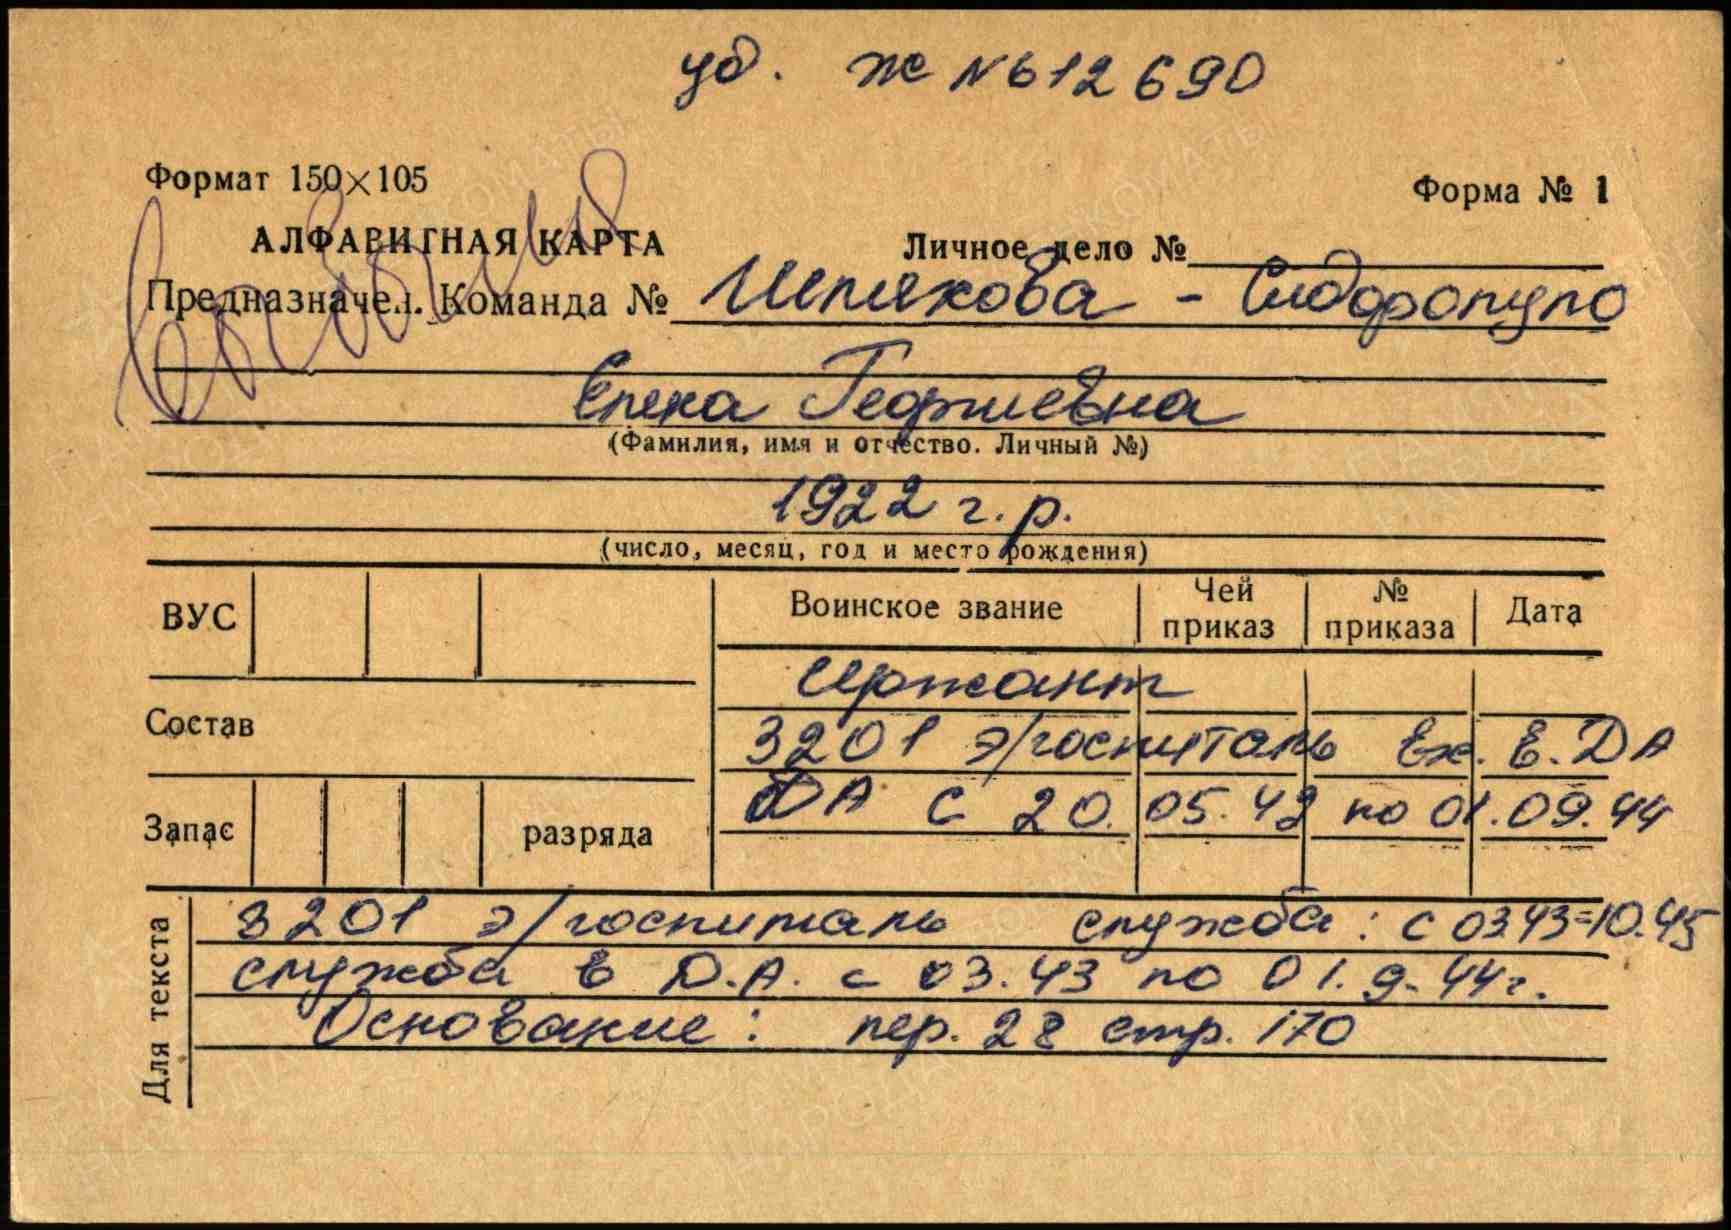 уд. Ж № 612690
Формат 150×105
Форма № 1
АЛФАВИТНАЯ КАРТА
Личное дело №
Предназначен. Команда №
Шпикова - Сидоропуло
Елена Георгиевна
(Фамилия, имя и отчество. Личный №)
1922 г.р.
(число, месяц, год и место рождения)
ВУС
Воинское звание
Чей приказ
№ приказа
Дата
сержант
Состав
3201 э/госпиталь Вх. в. ДА
ДА с 20.05.42 по 01.09.44
Запас
разряда
Для текста
3201 э/госпиталь служба: с 03.43=10.45
служба в Д.А. с 03.43 по 01.9.44г.
Основание: пер. 28 стр. 170